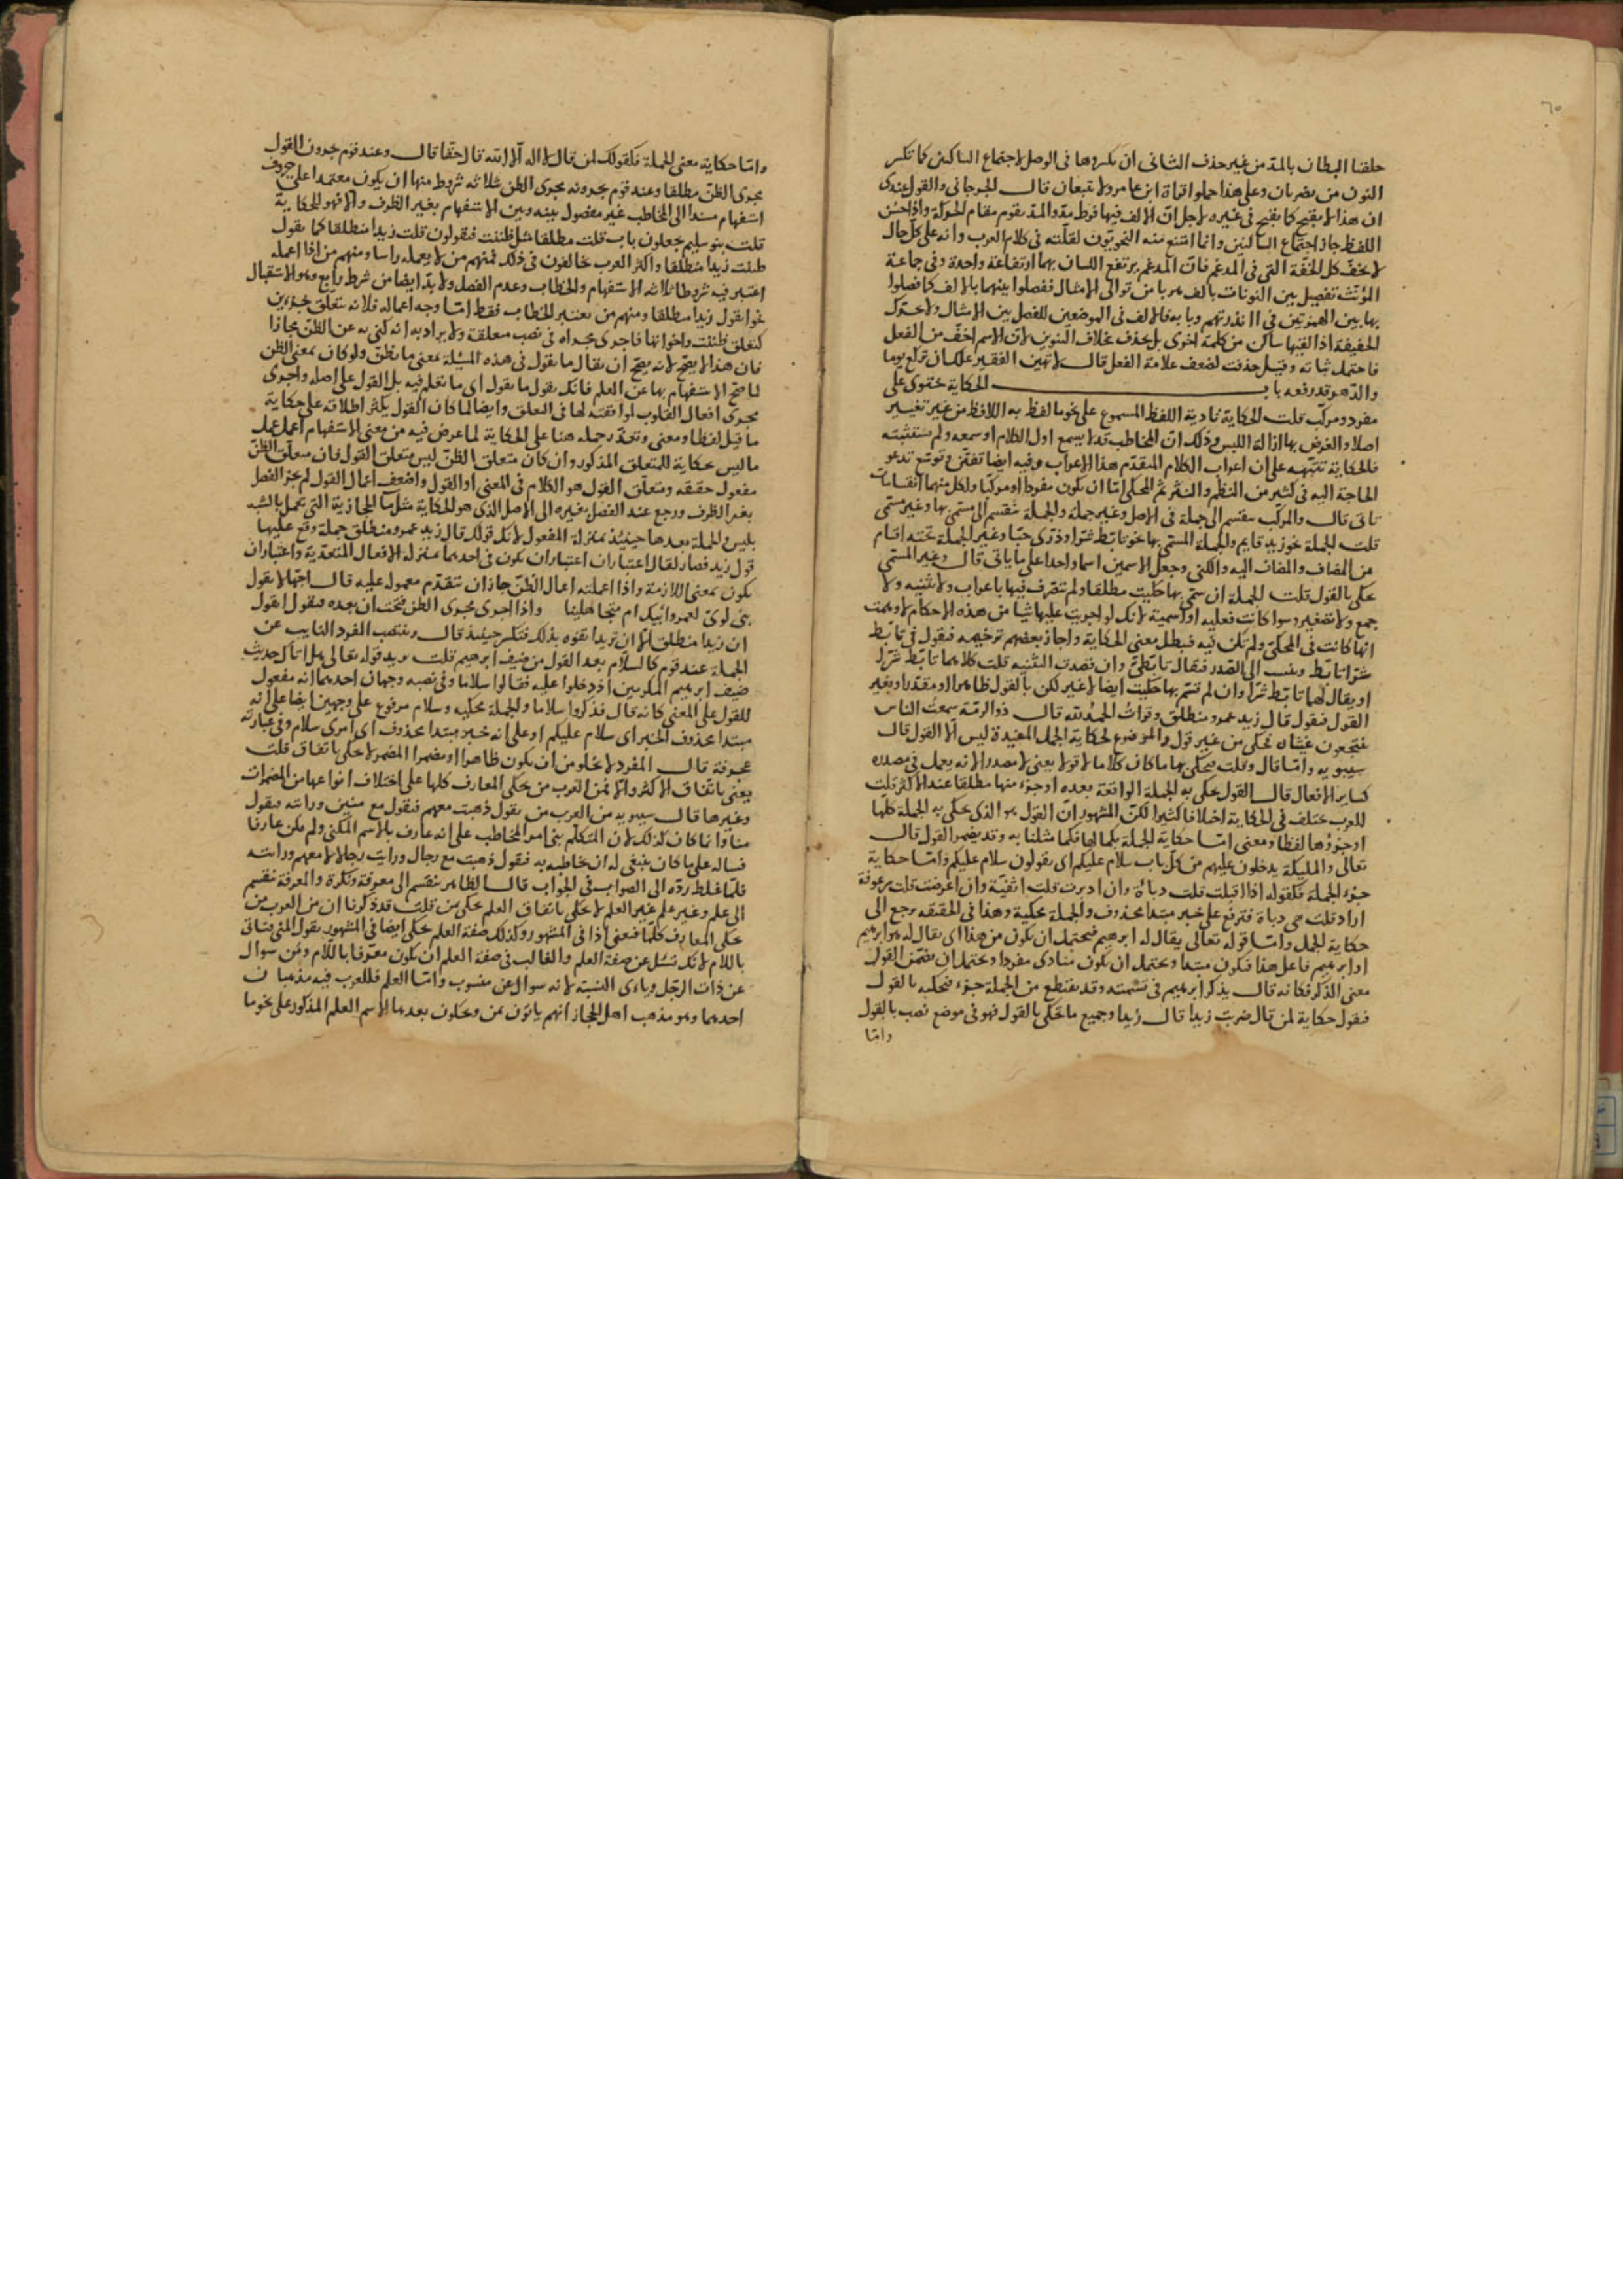 ٦٥
حلقتا البطان بالمد من غير حذف الثاني ان يكسروها في الوصل لاجتماع الساكنين كما تكسر
النون من يضربان وعلى هذا حملوا قراة ابن عامر ولا تتبعان قال الجرجاني والقول عندي
ان هذا لا يقبح كما يقبح في غيره لاجل ان الالف فيها فرط مد والمد يقوم مقام الحركة واذا حسن
اللفظ جاز اجتماع الساكنين وانما امتنع منه النحويون لقلته في كلام العرب وانه على كل حال
لا يخف كل الخفة التي في المدغم فان المدغم يرتفع اللسان بهما ارتفاعة واحدة وفي جماعة
المؤنث تفصيل بين النونات بالف هربا من توالي الامثال ففصلوا بينهما بالالف كما فصلوا
بها بين الهمزتين في اانذرتهم وبابه فالالف في الموضعين للفصل بين الامثال ولا تحرك
الخفيفة اذا لقيها ساكن من كلمة اخرى بل تحذف بخلاف التنوين لان الاسم اخف من الفعل
فاحتمل ثباته وقيل حذفت لضعف علامة الفعل قال لا تهين الفقير علك ان تركع يوما
والدهر قد رفعه باب الحكاية تحتوى على
مفرد ومركب قلت الحكاية تادية اللفظ المسموع على نحو ما لفظ به اللافظ من غير تغيير
اصلا والغرض بها ازالة اللبس وذلك ان المخاطب قد لا يسمع اول الكلام او سمعه ولم يستثبته
فالحكاية تنبيه على ان اعراب الكلام المتقدم هذا الاعراب وفيه ايضا تفنن وتوسع تدعو
الحاجة اليه في كثير من النظم والنثر ثم المحكي اما ان يكون مفردا او مركبا ولكل منهما انقسامات
تاتى قال والمركب ينقسم الى جملة في الاصل وغير جملة والجملة تنقسم الى مسمى بها وغير مسمى
قلت الجملة نحو زيد قايم والجملة المسمى بها نحو تابط شرا وذرى حبا وغير الجملة تحته اقسام
من المضاف والمضاف اليه والكنى وجعل الاسمين اسما واحدا على ما ياتى قال وغير المسمى
يحكى بالقول قلت الجملة ان سمى بها حكيت مطلقا ولم تتصرف فيها باعراب ولا تثنيه ولا
جمع ولا تصغير وسوا كانت فعليه او اسمية لانك لو اجريت عليها شيا من هذه الاحكام لاوهمت
انها كانت في المحكى ولم تكن فيه فيبطل معنى الحكاية واجاز بعضهم ترخيمه فيقول في تابط
شرا تابط وينسب الى الصدر فيقال تابطي وان قصدت التثنيه قلت كلاهما تابط شرا
او يقال لهما تابط شرا وان لم تسم بها حكيت ايضا لا غير لكن بالقول ظاهرا او مقدرا وبغير
القول فيقول قال زيد عمرو منطلق وقرات الحمد لله قال ذو الرمة سمعت الناس
ينتجعون غيثا يحكى من غير قول والموضوع لحكاية الجمل المفيدة ليس الا القول قال
سيبويه واما قال وقلت فيحكى بها ما كان كلاما لا قولا يعنى لا مصدرا لانه يعمل في مصدره
كساير الافعال قال القول يحكى به الجملة الواقعة بعده او جزء منها مطلقا عند الاكثر قلت
للعرب مختلف في الحكاية اختلافا كثيرا لكن المشهور ان القول هو الذي يحكى به الجملة كلها
او جزؤها لفظا ومعنى اما حكاية الجملة بكمالها فكما مثلنا به وقد يضمر القول قال
تعالى والمليكة يدخلون عليهم من كل باب سلام عليكم اى يقولون سلام عليكم واما حكاية
جزء الجملة فكقوله اذا اقبلت قلت دباة وان ادبرت قلت اثفية وان اعرضت قلت سرعوفة
اراد قلت هي دباة فترفع على خبر مبتدا محذوف والجملة محكية وهذا في الحقيقه يرجع الى
حكاية الجمل واما قوله تعالى يقال له ابرهيم فيحتمل ان يكون من هذا اى يقال له هو ابرهيم
او ابرهيم فاعل هذا فيكون مبتدا ويحتمل ان يكون منادى مفردا ويحتمل ان يضمن القول
معنى الذكر فكانه قال يذكر ابرهيم في تسميته وقد يقتطع من الجملة جزء فيحكيه بالقول
فيقول حكاية لمن قال ضربت زيدا قال زيدا وجميع ما يحكى بالقول فهو في موضع نصب بالقول
واما
واما حكاية معنى الجملة فكقولك لمن قال لا اله الا الله قال حقا قال وعند قوم يجرون القول
مجرى الظن مطلقا وعند قوم يجرونه مجرى الظن بثلاثه شروط منها ان يكون معتمدا على حرف
استفهام مسندا الى المخاطب غير مفصول بينه وبين الاستفهام بغير الظرف والا فهو للحكاية
قلت بنو سليم يجعلون باب قلت مطلقا مثل ظننت فيقولون قلت زيدا منطلقا كما يقول
ظننت زيدا منطلقا واكثر العرب يخالفون في ذلك فمنهم من لا يعمله راسا ومنهم من اذا اعمله
اعتبر فيه شروطا ثلاثه الاستفهام والخطاب وعدم الفصل ولا بد ايضا من شرط رابع وهو الاستقبال
نحو اتقول زيدا منطلقا ومنهم من يعتبر الخطاب فقط اما وجه اعماله فلانه متعلق بجزءين
كتعلق ظننت واخواتها فاجرى مجراه في نصب معلقة ولا يراد به انه كنى به عن الظن مجازا
فان هذا لا يصح لانه يصح ان يقال ما تقول في هذه المسئلة بمعنى ما تظن ولو كان بمعنى الظن
لما صح الاستفهام بها عن العلم فانك تقول ما تقول اى ما تعلم فيه بل القول على اصله واجرى
مجرى افعال القلوب لموافقته لها في التعلق وايضا لما كان القول يكثر اطلاقه على حكاية
ما قيل لفظا ومعنى وتعذر حمله هنا على الحكاية لما عرض فيه من معنى الاستفهام اعمل عمل
ما ليس حكاية للمتعلق المذكور وان كان متعلق الظن ليس متعلق القول فان متعلق الظن
مفعول حقيقه ومتعلق القول هو الكلام في المعنى او القول ولضعف اعمال القول لم يجز الفصل
بغير الظرف ورجع عند الفصل بغيره الى الاصل الذي هو للحكاية مثل ما الحجازية التي تعمل بالشبه
بليس والجملة بعدها حينئذ بمنزلة المفعول لانك قولك قال زيد عمرو منطلق جملة وقع عليها
قول زيد فصار لقال اعتباران اعتبار ان يكون في احدهما بمنزلة الافعال المتعدية واعتبار ان
يكون بمعنى اللازمة واذا اعملته اعمال الظن جاز ان يتقدم معمول عليه قال اجهالا تقول
بنى لوى لعمر ابيك ام متجاهلينا واذا اجرى مجرى الظن فتحت ان بعده فيقول اتقول
ان زيدا منطلق الا ان تريد انه تفوه بذلك فتكسر حينئذ قال وينتصب المفرد النايب عن
الجملة عند قوم كالسلام بعد القول من ضيف ابرهيم قلت يريد قوله تعالى هل اتاك حديث
ضيف ابرهيم المكرمين اذ دخلوا عليه فقالوا سلاما وفى نصبه وجهان احدهما انه مفعول
للقول على المعنى كانه قال فذكروا سلاما والجملة محكيه وسلام مرفوع على وجهين ايضا على انه
مبتدا محذوف الخبر اى سلام عليكم او على انه خبر مبتدا محذوف اى امرى سلام وفى عبارته
عجرفة قال المفرد لا يخلو من ان يكون ظاهرا او مضمرا المضمر لا يحكى باتفاق قلت
يعنى باتفاق الاكثر والا فمن العرب من يحكى المعارف كلها على اختلاف انواعها من المضمرات
وغيرها قال سيبويه من العرب من يقول ذهبت معهم فيقول مع منين ورايته فيقول
منا وانما كان كذلك لان المتكلم بنى امر المخاطب على انه عارف بالاسم المكنى ولم يكن عارفا
فساله على ما كان ينبغى له ان خاطبه به فيقول ذهبت مع رجال ورايت رجلا لا معهم ورايته
فلما غلط رده الى الصواب في الجواب قال الظاهر ينقسم الى معرفة ونكرة والمعرفة تنقسم
الى علم وغير علم غير العلم لا يحكى باتفاق العلم يحكى بمن قلت قد ذكرنا ان من العرب من
يحكى المعارف كلها فيعنى اذا في المشهور وكذلك صفة العلم يحكى ايضا في المشهور يقول المنى وتاتى
باللام لانك تسئل عن صفة العلم والغالب في صفة العلم ان يكون معرفا باللام ومن سوال
عن ذات الرجل وياءى النسبة لانه سوال عن منسوب واما العلم فللعرب فيه مذهبان
احدهما وهو مذهب اهل الحجاز انهم ياتون بمن ويحكون بعدها الاسم العلم المذكور على نحو ما